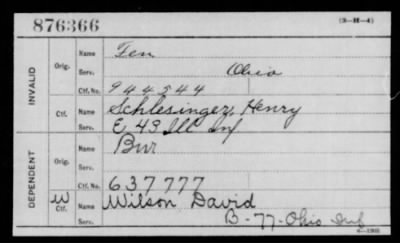 876366 (3—H—4)
INVALID
Orig. Name Fen
Serv. Ohio
Ctf. No. 944544
Ctf. Name Schlesinger, Henry
Serv. E 43 Ill Inf
DEPENDENT
Orig. Name Bur
Serv.
Ctf. No. 637777
W Ctf. Name Wilson David
Serv. B-77-Ohio Inf